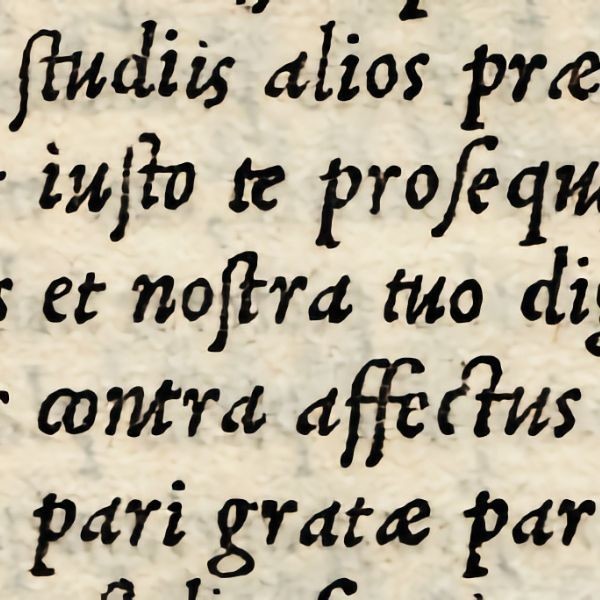 ſtudiis alios præ
iuſto te proſequ
et noſtra tuo dig
contra affectus
pari gratæ par